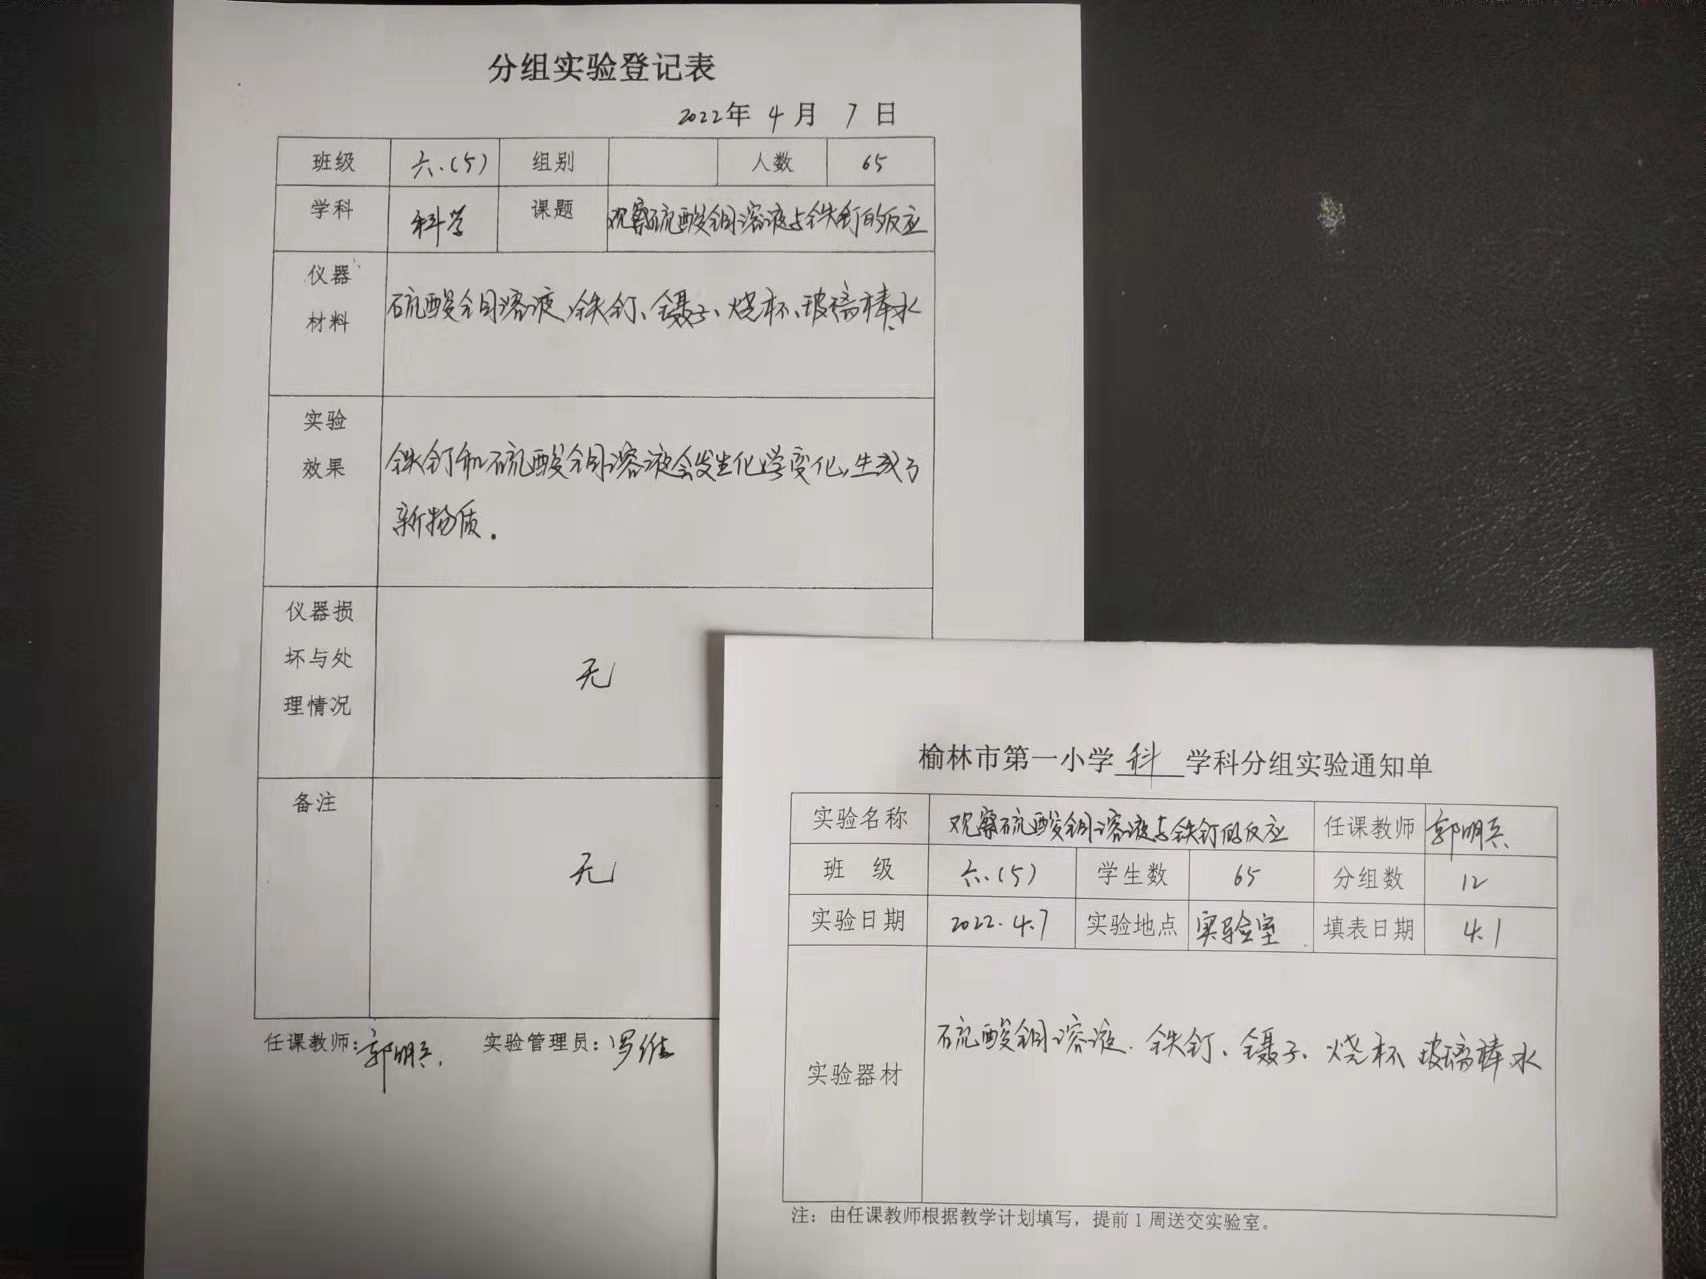 分组实验登记表
2022年 4月 7日
班级 六.(5) 组别 人数 65
学科 科学 课题 观察硫酸铜溶液与铁钉的反应
仪器
材料
硫酸铜溶液、铁钉、镊子、烧杯、玻璃棒、水
实验
效果
铁钉和硫酸铜溶液会发生化学变化,生成了
新物质.
仪器损
坏与处
理情况
无
备注
无
任课教师: 郭明兵. 实验管理员: 罗维
榆林市第一小学 科 学科分组实验通知单
实验名称 观察硫酸铜溶液与铁钉的反应 任课教师 郭明兵
班 级 六.(5) 学生数 65 分组数 12
实验日期 2022.4.7 实验地点 实验室 填表日期 4.1
实验器材 硫酸铜溶液、铁钉、镊子、烧杯 玻璃棒 水
注:由任课教师根据教学计划填写,提前1周送交实验室。